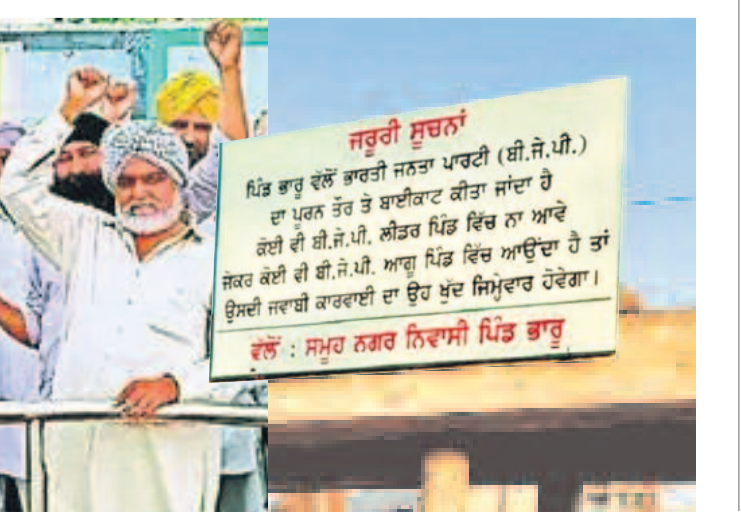 ਜਰੂਰੀ ਸੂਚਨਾਂ
ਪਿੰਡ ਭਾਰੂ ਵੱਲੋਂ ਭਾਰਤੀ ਜਨਤਾ ਪਾਰਟੀ (ਬੀ.ਜੇ.ਪੀ.)
ਦਾ ਪੂਰਨ ਤੌਰ ਤੇ ਬਾਈਕਾਟ ਕੀਤਾ ਜਾਂਦਾ ਹੈ
ਕੋਈ ਵੀ ਬੀ.ਜੇ.ਪੀ. ਲੀਡਰ ਪਿੰਡ ਵਿੱਚ ਨਾ ਆਵੇ
ਜੇਕਰ ਕੋਈ ਵੀ ਬੀ.ਜੇ.ਪੀ. ਆਗੂ ਪਿੰਡ ਵਿੱਚ ਆਉਂਦਾ ਹੈ ਤਾਂ
ਉਸਦੀ ਜਵਾਬੀ ਕਾਰਵਾਈ ਦਾ ਉਹ ਖੁੱਦ ਜਿਮ੍ਹੇਵਾਰ ਹੋਵੇਗਾ।
ਵੱਲੋਂ : ਸਮੂਹ ਨਗਰ ਨਿਵਾਸੀ ਪਿੰਡ ਭਾਰੂ